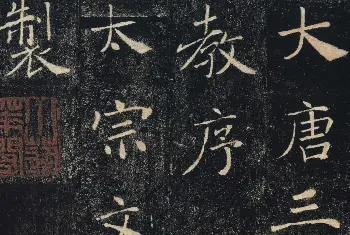 大唐三
教序
太宗文
製